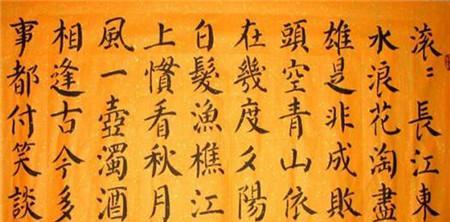 滚〻長江東
水浪花淘盡
雄是非成敗
頭空青山依
在幾度夕陽
白髮漁樵江
上慣看秋月
風一壺濁酒
相逢古今多
事都付笑談